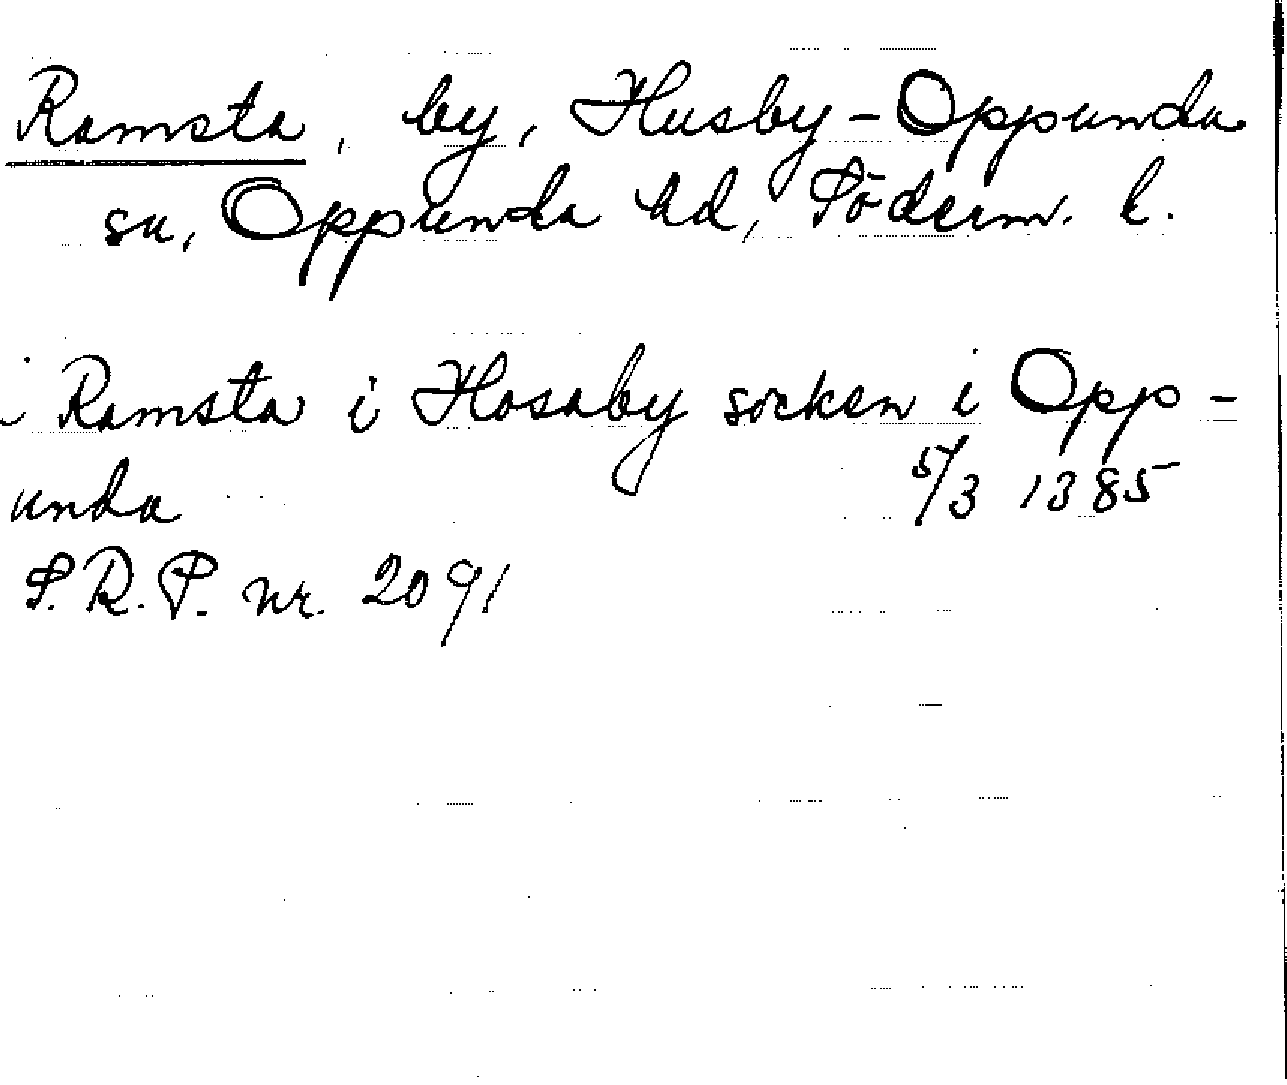 Ramsta, by, Husby-Oppunda
sn, Oppunda hd, Söderm. l.
i Ramsta i Hosaby socken i Opp-
unda 5/3 1385
S.R.P. nr. 2091